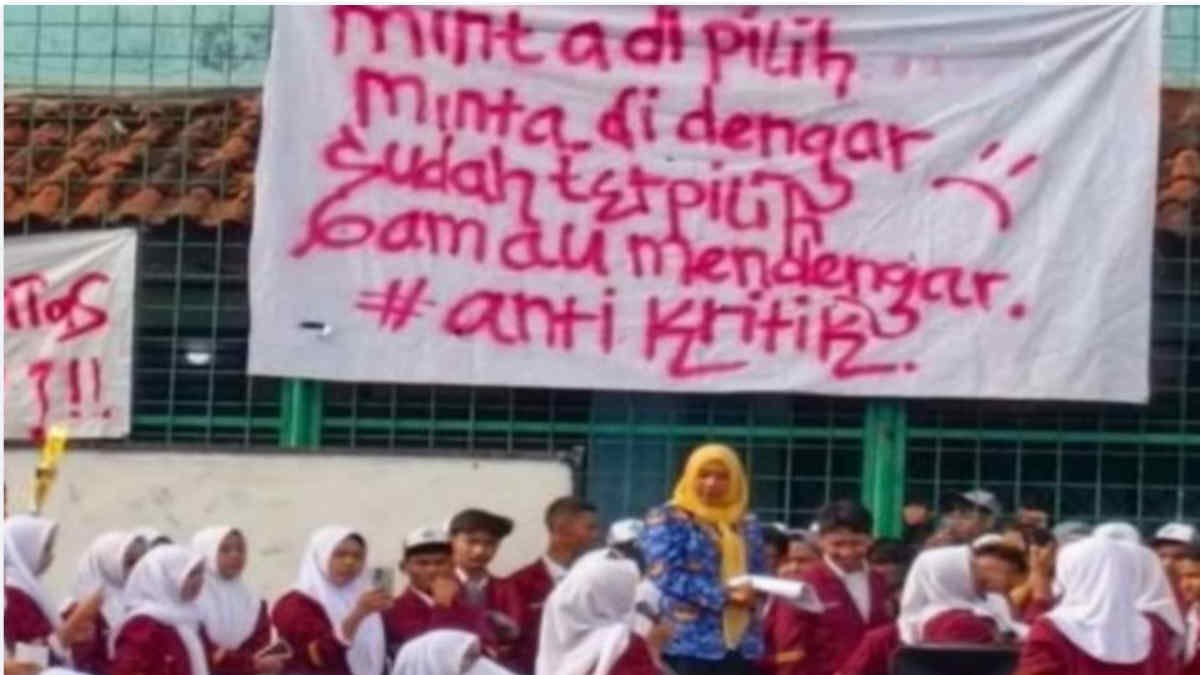 Minta di pilih
Minta di dengar
Sudah terpilih
Gam au mendengar.
#anti kritik.
?!!